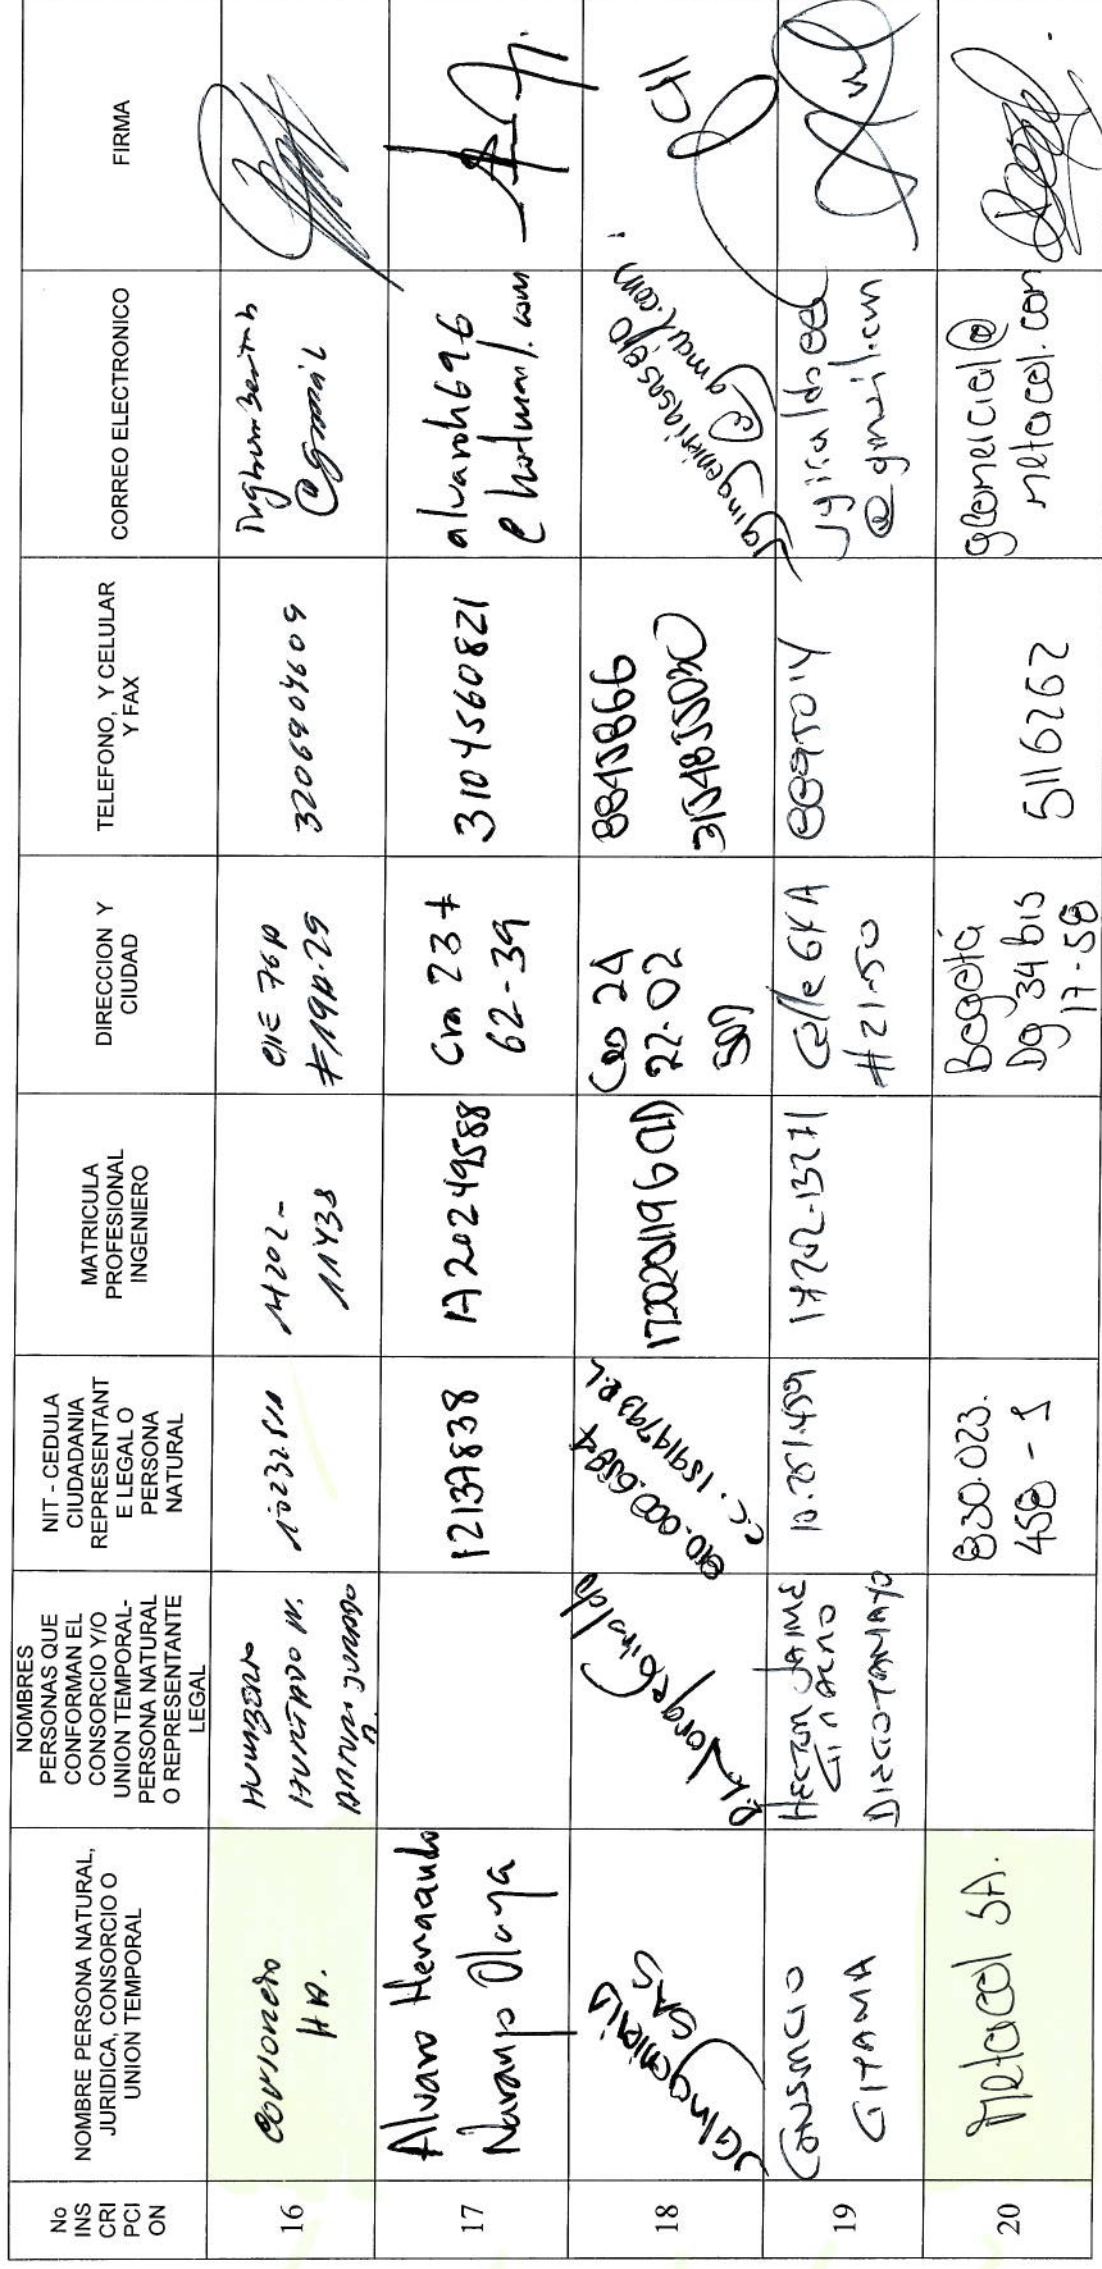 No
INS
CRI
PCI
ON
NOMBRE PERSONA NATURAL,
JURIDICA, CONSORCIO O
UNION TEMPORAL
NOMBRES
PERSONAS QUE
CONFORMAN EL
CONSORCIO Y/O
UNION TEMPORAL-
PERSONA NATURAL
O REPRESENTANTE
LEGAL
NIT - CEDULA
CIUDADANIA
REPRESENTANT
E LEGAL O
PERSONA
NATURAL
MATRICULA
PROFESIONAL
INGENIERO
DIRECCION Y
CIUDAD
TELEFONO, Y CELULAR
Y FAX
CORREO ELECTRONICO
FIRMA
16
HUMBERTO
HURTADO N.
ARTURO JURADO
17202-
11438
Clle 76A
#19A-29
3206904609
@gmail
17
Alvaro Hernando
Naranjo Olaya
12137838
1720249588
Cra 23 #
62-39
3104560821
alvaroh696
@hotmail.com
18
JGIngenieria
SAS
R.L Jorge Giraldo
C.C. 15919793 R.L
1720201196 CLD
Cra 24
22-02
501
8845866
jgingenieriasas@
@gmail.com
19
CONSORCIO
GITAMA
HECTOR JAIME
DIEGO TAMAYO
10.251.459
17202-13271
Calle 64A
#21-50
@gmail.com
20
Metacol SA.
830.023.
458 - 1
Bogotá
Dg 34 bis
17-58
5116262
gcomercial@
metacol.com